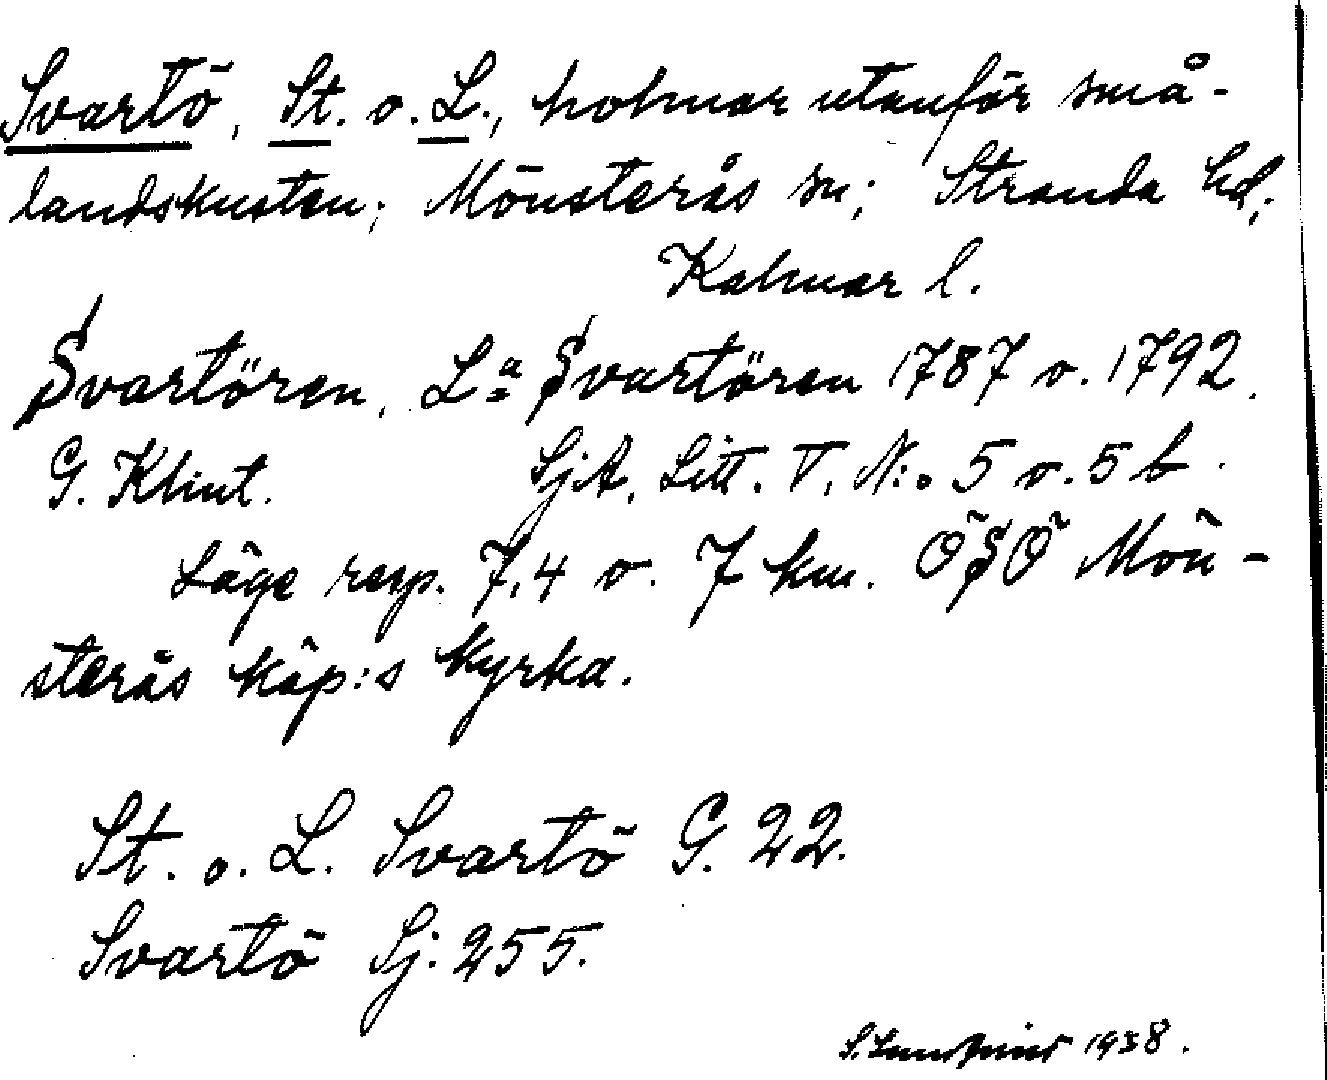 Svartö, St. o. L., holmar utanför små-
landskusten; Mönsterås sn; Stranda hd;
Kalmar l.
Svartören, La Svartören 1787 o. 1792.
G. Klint. SjA, Litt. V, N:o 5 o. 5 b.
Läge resp. 7,4 o. 7 km. ÖSÖ Mön-
sterås köp:s kyrka.
St. o. L. Svartö G. 22.
Svartö Sj: 255.
1938.